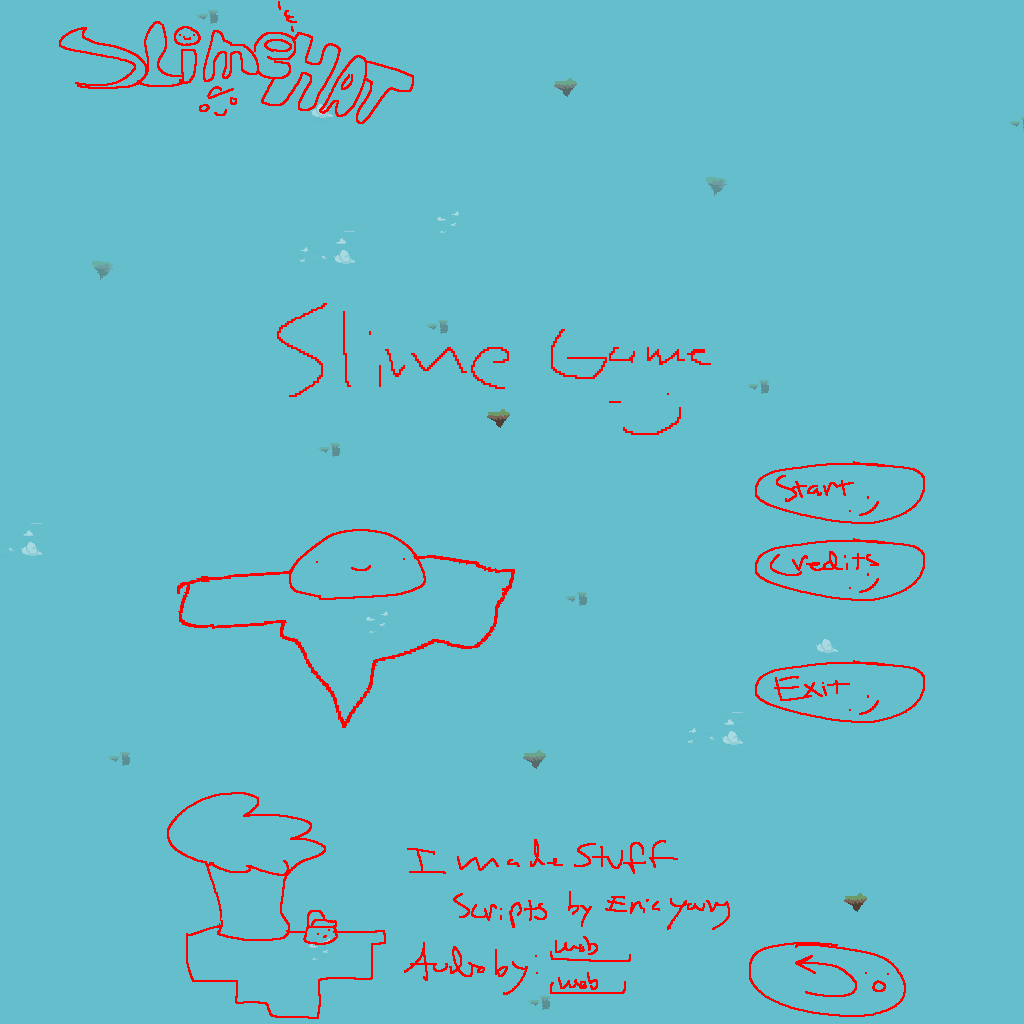 Slime & HAT
Slime Game
Start
Credits
Exit
I made Stuff
Scripts by Eric yang
Audio by: wob
wob